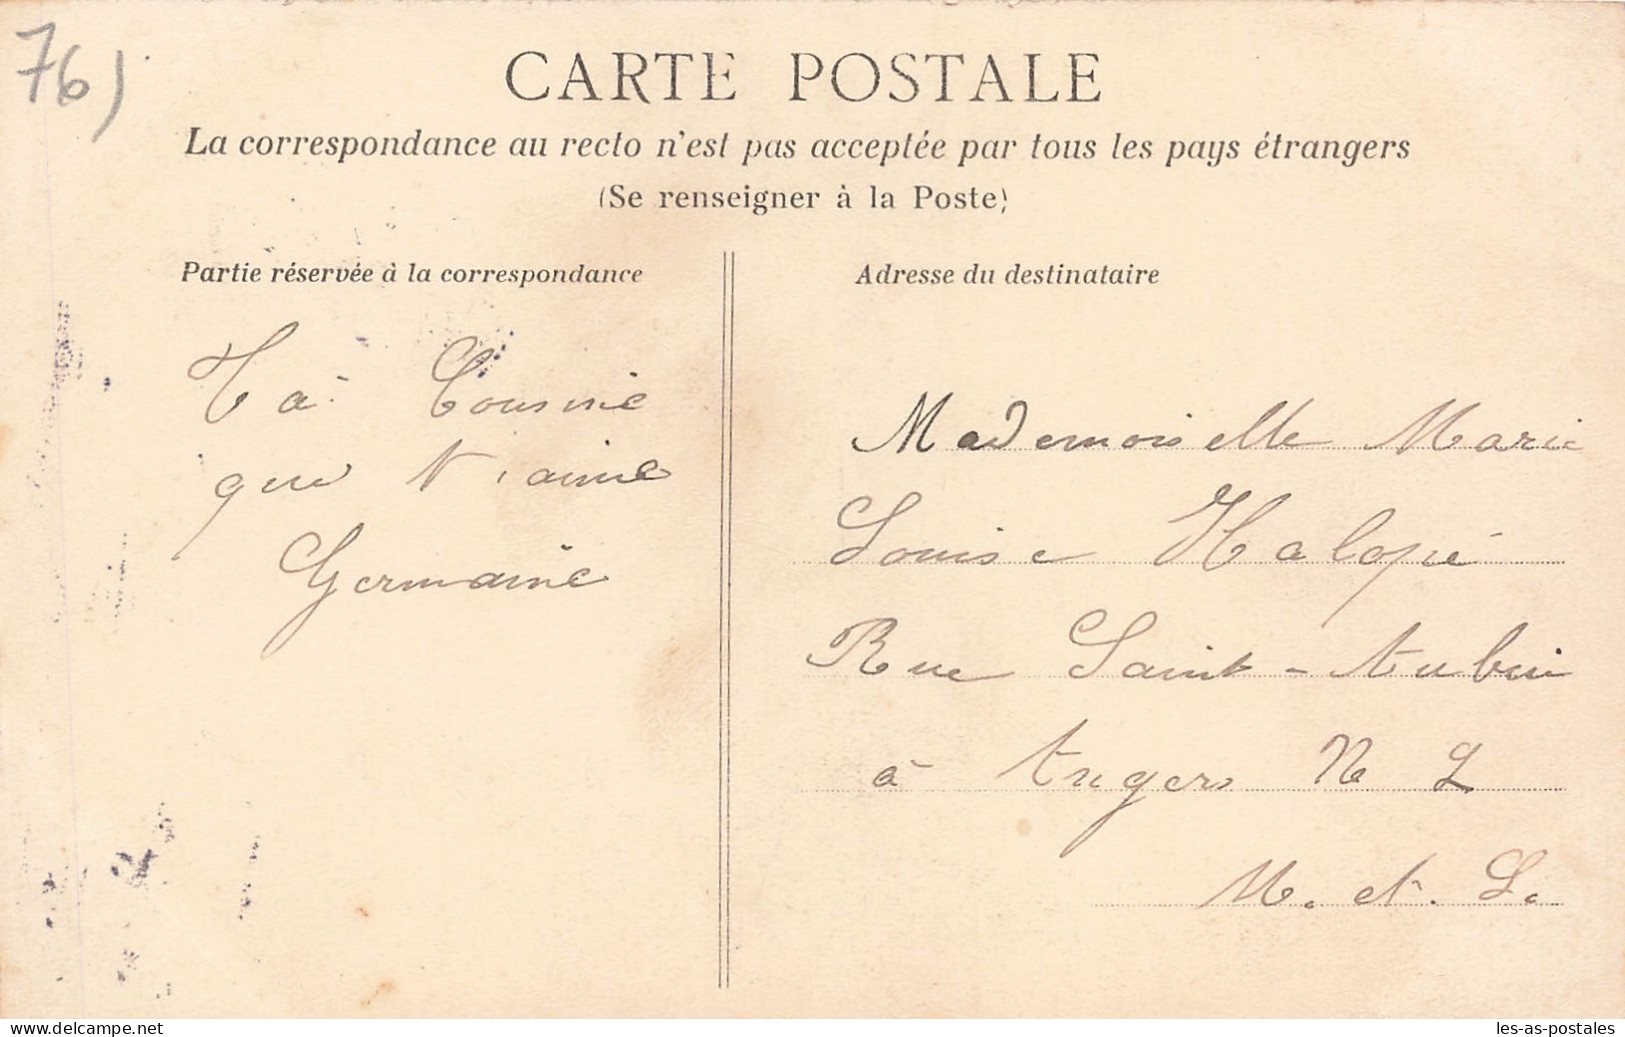 76)
CARTE POSTALE
La correspondance au recto n'est pas acceptée par tous les pays étrangers
(Se renseigner à la Poste)
Partie réservée à la correspondance
Ta Cousine
que t'aime
Germaine
Adresse du destinataire
Mademoiselle Marie
Louise Halopé
Rue Saint-Aubin
à Angers
M. et L.
www.delcampe.net
les-as-postales